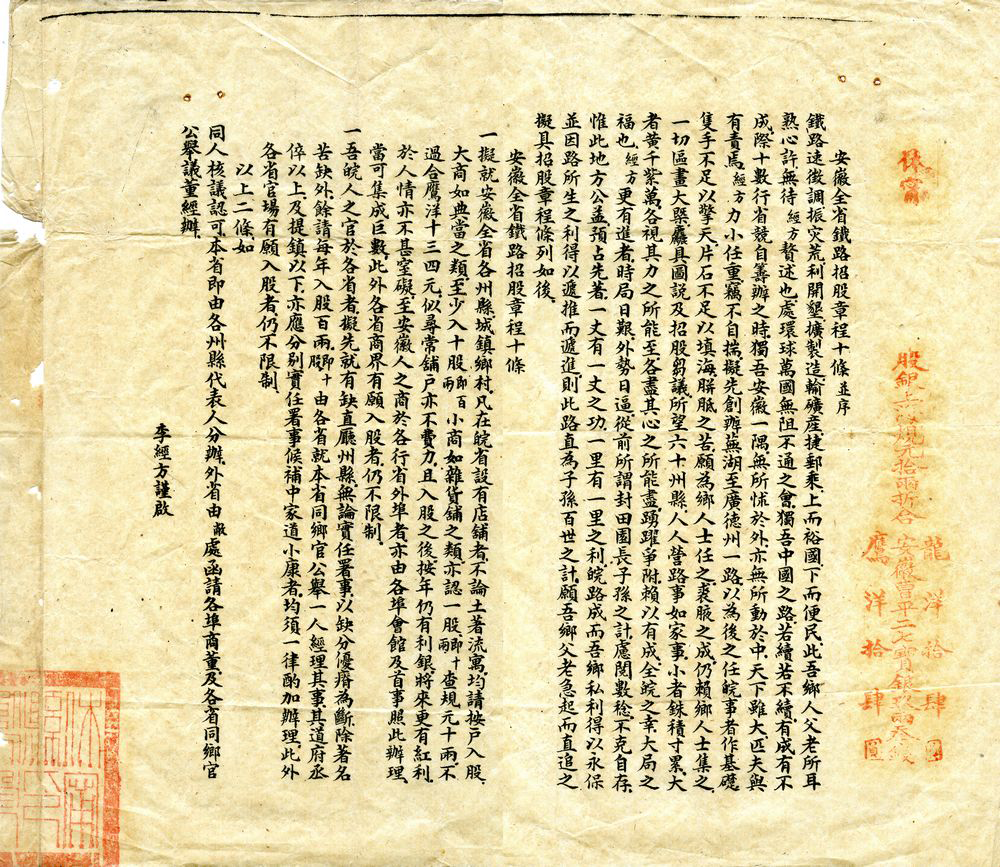 股銀上海規元拾兩折合
安徽晋平二七寶銀玖兩叁
龍洋拾肆圓
鷹洋拾肆圓
安徽全省鐵路招股章程十條並序
鐵路速徵調振灾荒利開墾擴製造輸礦產捷郵乘上而裕國下而便民此吾鄉人父老所耳
熟心許無待經方贅述也處環球萬國無阻不通之會獨吾中國之路若續若不續有成有不
成際十數行省競自籌辦之時獨吾安徽一隅無所怵於外亦無所動於中天下雖大匹夫與
有責焉經方力小任重竊不自揣擬先創辦蕪湖至廣德州一路以為後之任皖事者作基礎
隻手不足以擎天片石不足以填海胼胝之苦願為鄉人士任之裘腋之成仍賴鄉人士集之
一切區畫大槩麤具圖說及招股芻議所望六十州縣人人營路事如家事小者銖積寸累大
者黃千紫萬各視其力之所能至各盡其心之所能盡踴躍爭附賴以有成全皖之幸大局之
福也經方更有進者時局日艱外勢日逼從前所謂封田園長子孫之計慮閱數稔不克自存
惟此地方公益預占先著一丈有一丈之功一里有一里之利皖路成而吾鄉私利得以永保
並因路所生之利得以遞推而遞進則此路直為子孫百世之計願吾鄉父老急起而直追之
擬具招股章程條列如後
安徽全省鐵路招股章程十條
一擬就安徽全省各州縣城鎮鄉村凡在皖省設有店舖者不論土著流寓均請按戶入股
大商如典當之類至少入十股即百兩小商如雜貨舖之類亦認一股即十兩查規元十兩不
過合鷹洋十三四元似尋常舖戶亦不費力且入股之後按年仍有利銀將來更有紅利
於人情亦不甚窒礙至安徽人之商於各行省外埠者亦由各埠會館及首事照此辦理
當可集成巨數此外各省商界有願入股者仍不限制
一吾皖人之官於各省者擬先就有缺直廳州縣無論實任署事以缺分優瘠為斷除著名
苦缺外餘請每年入股百兩即十股由各省就本省同鄉官公舉一人經理其事其道府丞
倅以上及提鎮以下亦應分別實任署事候補中家道小康者均須一律酌加辦理此外
各省官場有願入股者仍不限制
以上二條如
同人核議認可本省即由各州縣代表人分辦外省由敝處函請各埠商董及各省同鄉官
公舉議董經辦
李經方謹啟